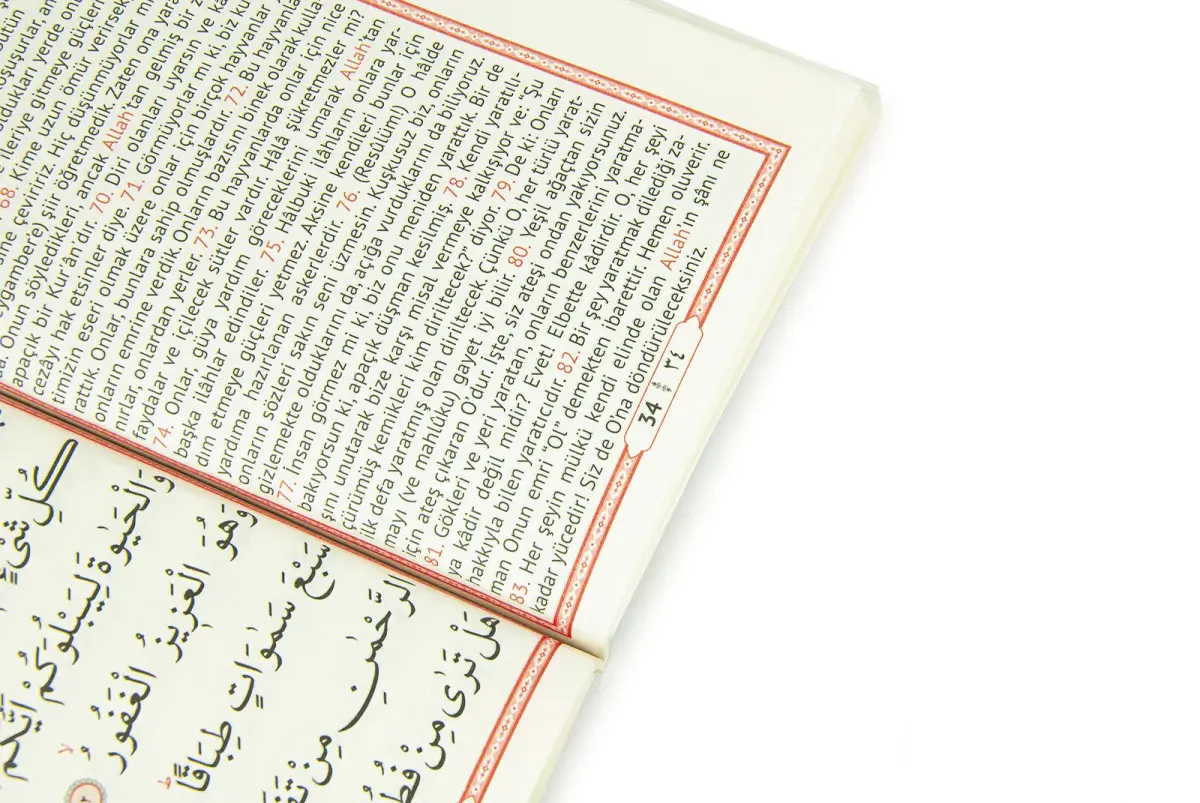 oldukları yerde
ileriye gitmeye güçleri
68. Kime uzun ömür verirsek
çeviririz. Hiç düşünmüyorlar mı
şiir öğretmedik. Zaten ona yara
Onun söyledikleri, ancak Allah'tan gelmiş bir z
apaçık bir Kur'ân'dır. 70. Diri olanları uyarsın ve kâ
cezayı hak etsinler diye. 71. Görmüyorlar mı ki, biz ku
timizin eseri olmak üzere onlar için birçok hayvanlar
rattık. Onlar, bunlara sahip olmuşlardır. 72. Bu hayvanla
onların emrine verdik. Onların bazısını binek olarak kulla
nırlar, onlardan yerler. 73. Bu hayvanlarda onlar için nice
faydalar ve içilecek sütler vardır. Hâlâ şükretmezler mi?
74. Onlar, güya yardım göreceklerini umarak Allah'tan
başka ilâhlar edindiler. 75. Hâlbuki ilâhların onlara yar-
dım etmeye güçleri yetmez. Aksine kendileri bunlar için
yardıma hazırlanan askerlerdir. 76. (Resûlüm!) O hâlde
onların sözleri sakın seni üzmesin. Kuşkusuz biz, onların
gizlemekte olduklarını da, açığa vurduklarını da biliyoruz.
77. İnsan görmez mi ki, biz onu meniden yarattık. Bir de
bakıyorsun ki, apaçık düşman kesilmiş. 78. Kendi yaratılı-
şını unutarak bize karşı misal vermeye kalkışıyor ve: “Şu
çürümüş kemikleri kim diriltecek?” diyor. 79. De ki: Onları
ilk defa yaratmış olan diriltecek. Çünkü O, her türlü yarat-
mayı (ve mahlûku) gayet iyi bilir. 80. Yeşil ağaçtan sizin
için ateş çıkaran O'dur. İşte, siz ateşi ondan yakıyorsunuz.
81. Gökleri ve yeri yaratan, onların benzerlerini yaratma-
ya kâdir değil midir? Evet! Elbette kâdirdir. O, her şeyi
hakkıyla bilen yaratıcıdır. 82. Bir şey yaratmak dilediği za-
man Onun emri “Ol” demekten ibarettir. Hemen oluverir.
83. Her şeyin mülkü kendi elinde olan Allah'ın şânı ne
kadar yücedir! Siz de O'na döndürüleceksiniz.
34 ٣٤
كُلِّ شَيْءٍ
وَالْحَيٰوةَ لِيَبْلُوَكُمْ اَيُّكُمْ
وَهُوَ الْعَزِيزُ الْغَفُورُ ۙ ٢
سَبْعَ سَمٰوَاتٍ طِبَاقًا ط
الرَّحْمٰنِ مِنْ
هَلْ تَرٰى مِنْ